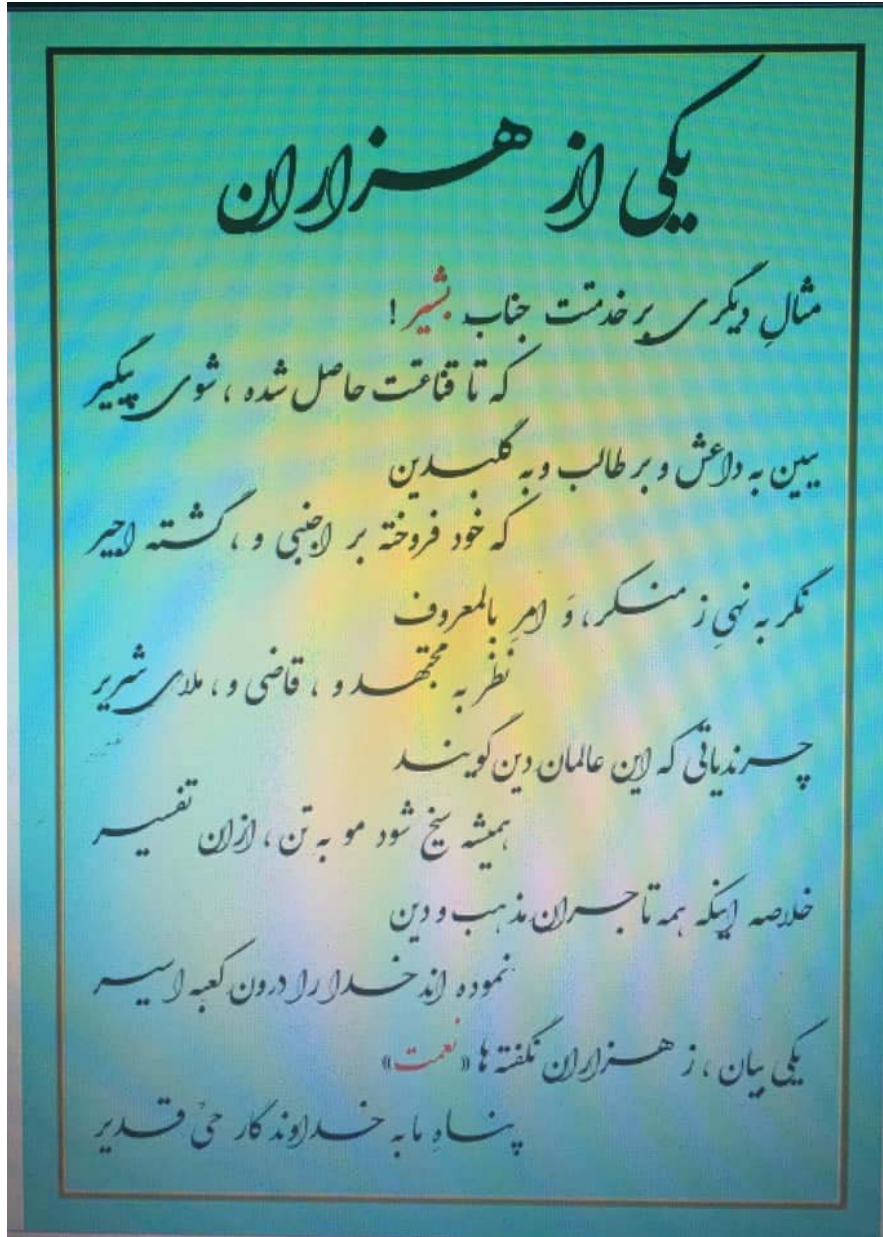 یکی از هزاران
مثالِ دیگری بر خدمتت جناب بشیر !
که تا قناعت حاصل شده ، شوی پیگیر
ببین به داعش و بر طالب و به گلبدین
که خود فروخته بر اجنبی و ، گشته اجیر
نگر به نهیِ ز منکر ، وَ امرِ بالمعروف
نظر به مجتهد و ، قاضی و ، ملای شریر
چرندیاتی که این عالمان دین گویند
همیشه سیخ شود مو به تن ، ازان تفسیر
خلاصه اینکه همه تاجران مذهب و دین
نموده اند خدا را درون کعبه اسیر
یکی بیان ، ز هزاران نگفته ها «نعمت»
پناهِ ما به خداوندگار حیِّ قدیر